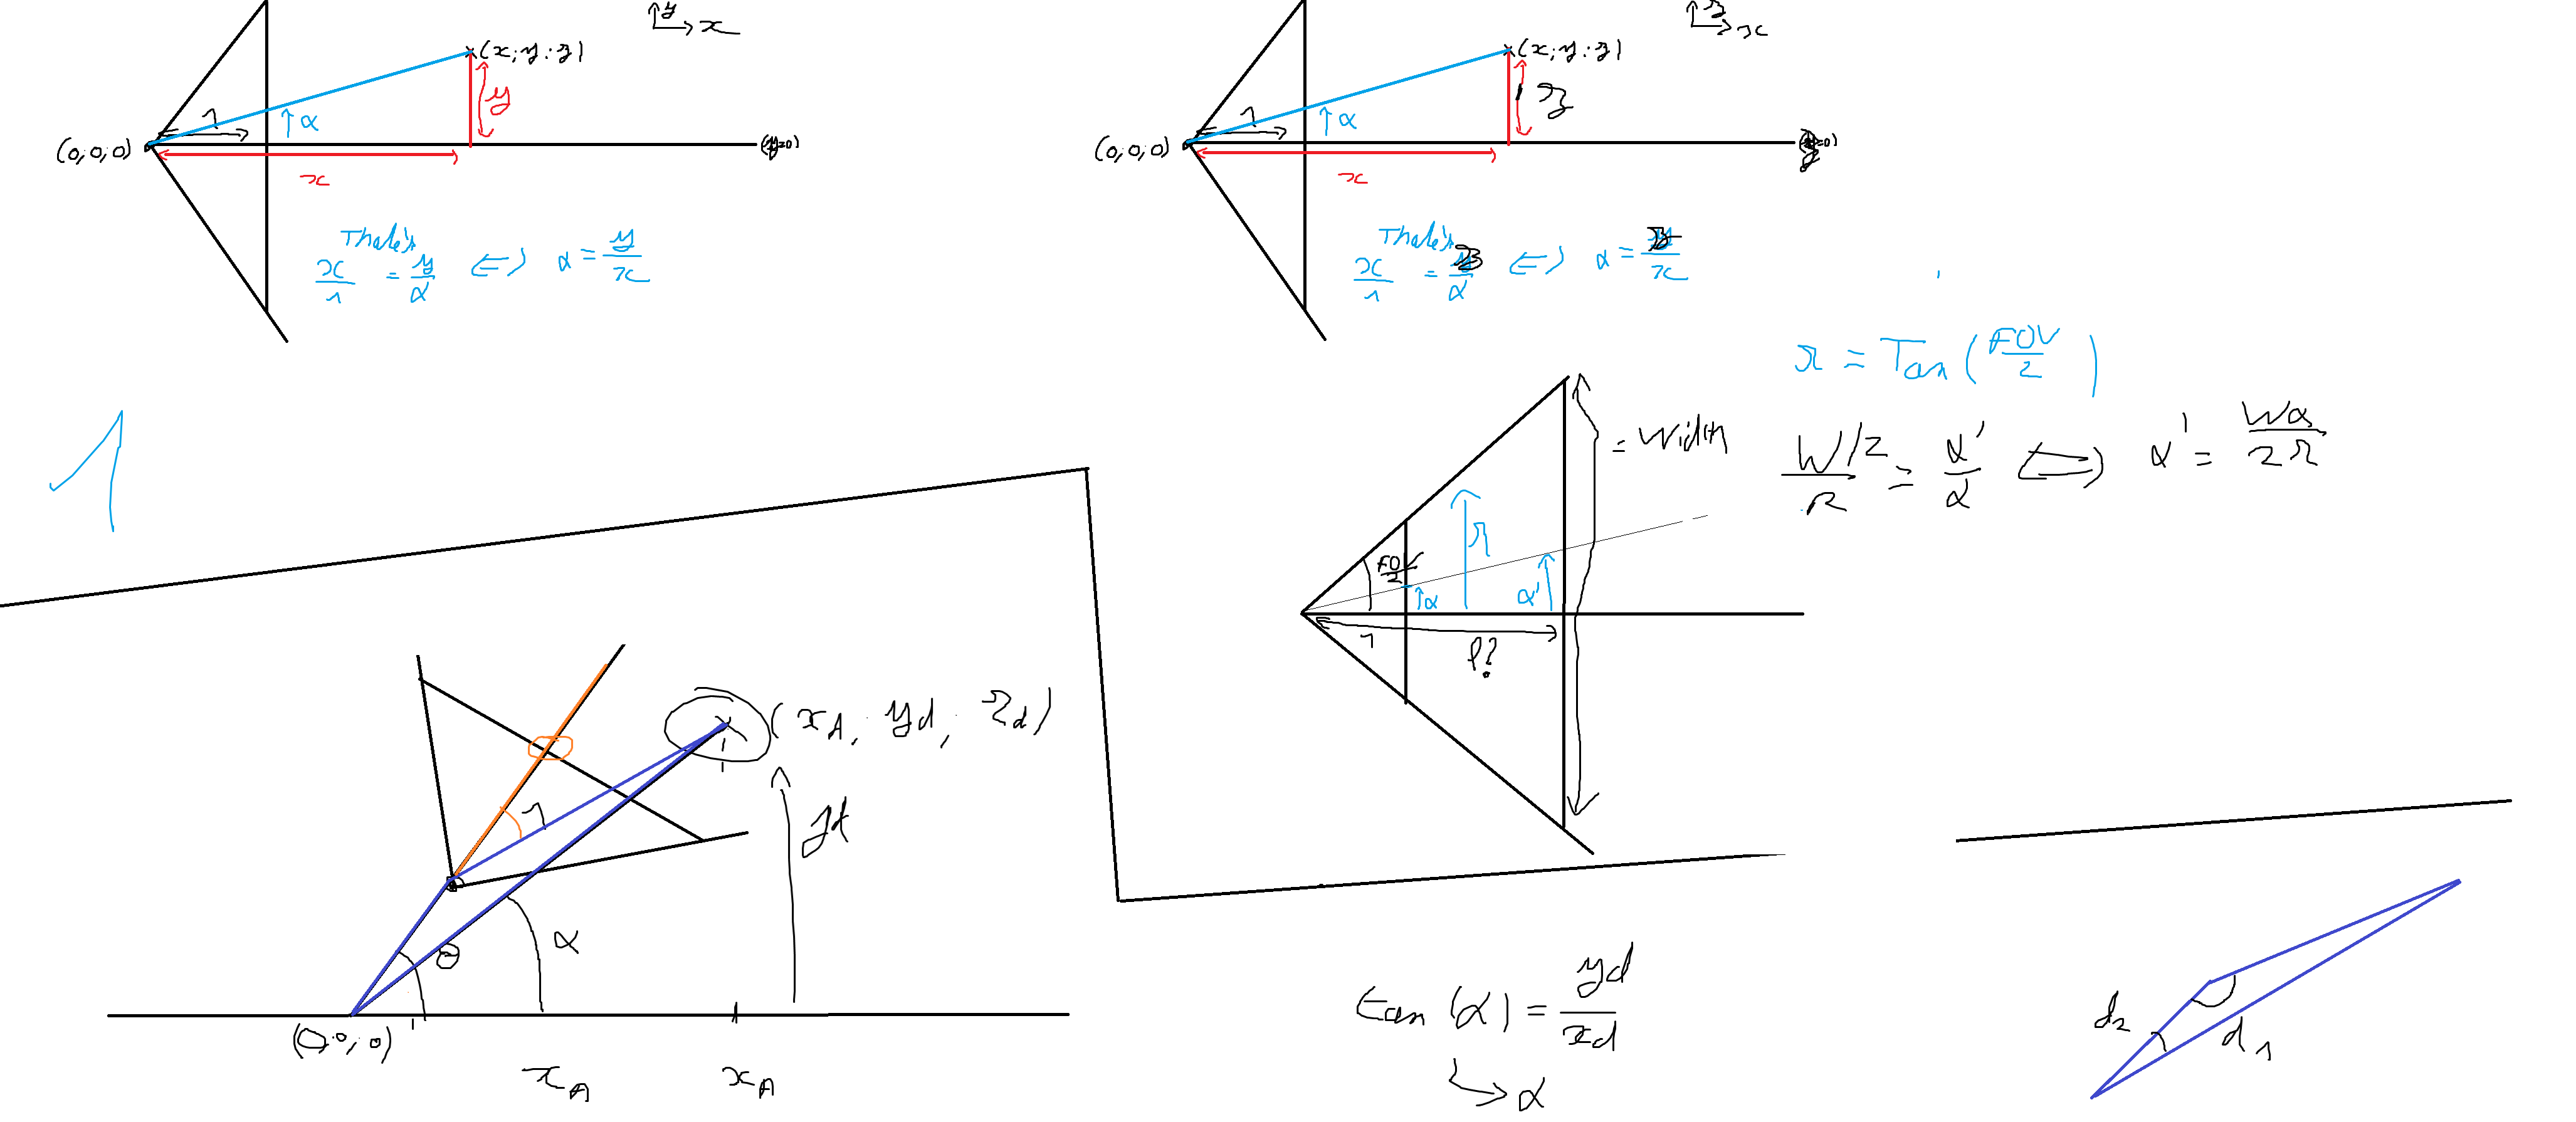 y
x
(x; y; z)
y
1
α
(0; 0; 0)
(y=0)
x
Thalès
x/1 = y/α ⇔ α = y/x
z
x
(x; y; z)
z
1
α
(0; 0; 0)
x
Thalès
x/1 = z/α ⇔ α = z/x
1
r = Tan(FOV/2)
= Width
W/2/r = α'/α ⇔ α' = Wα/2r
r
FOV/2
α
α'
1
l?
(xA; yd; zd)
1
yd
α
θ
(0; 0; 0)
xA
xA
tan(α) = yd/xd
↳ α
d2
d1